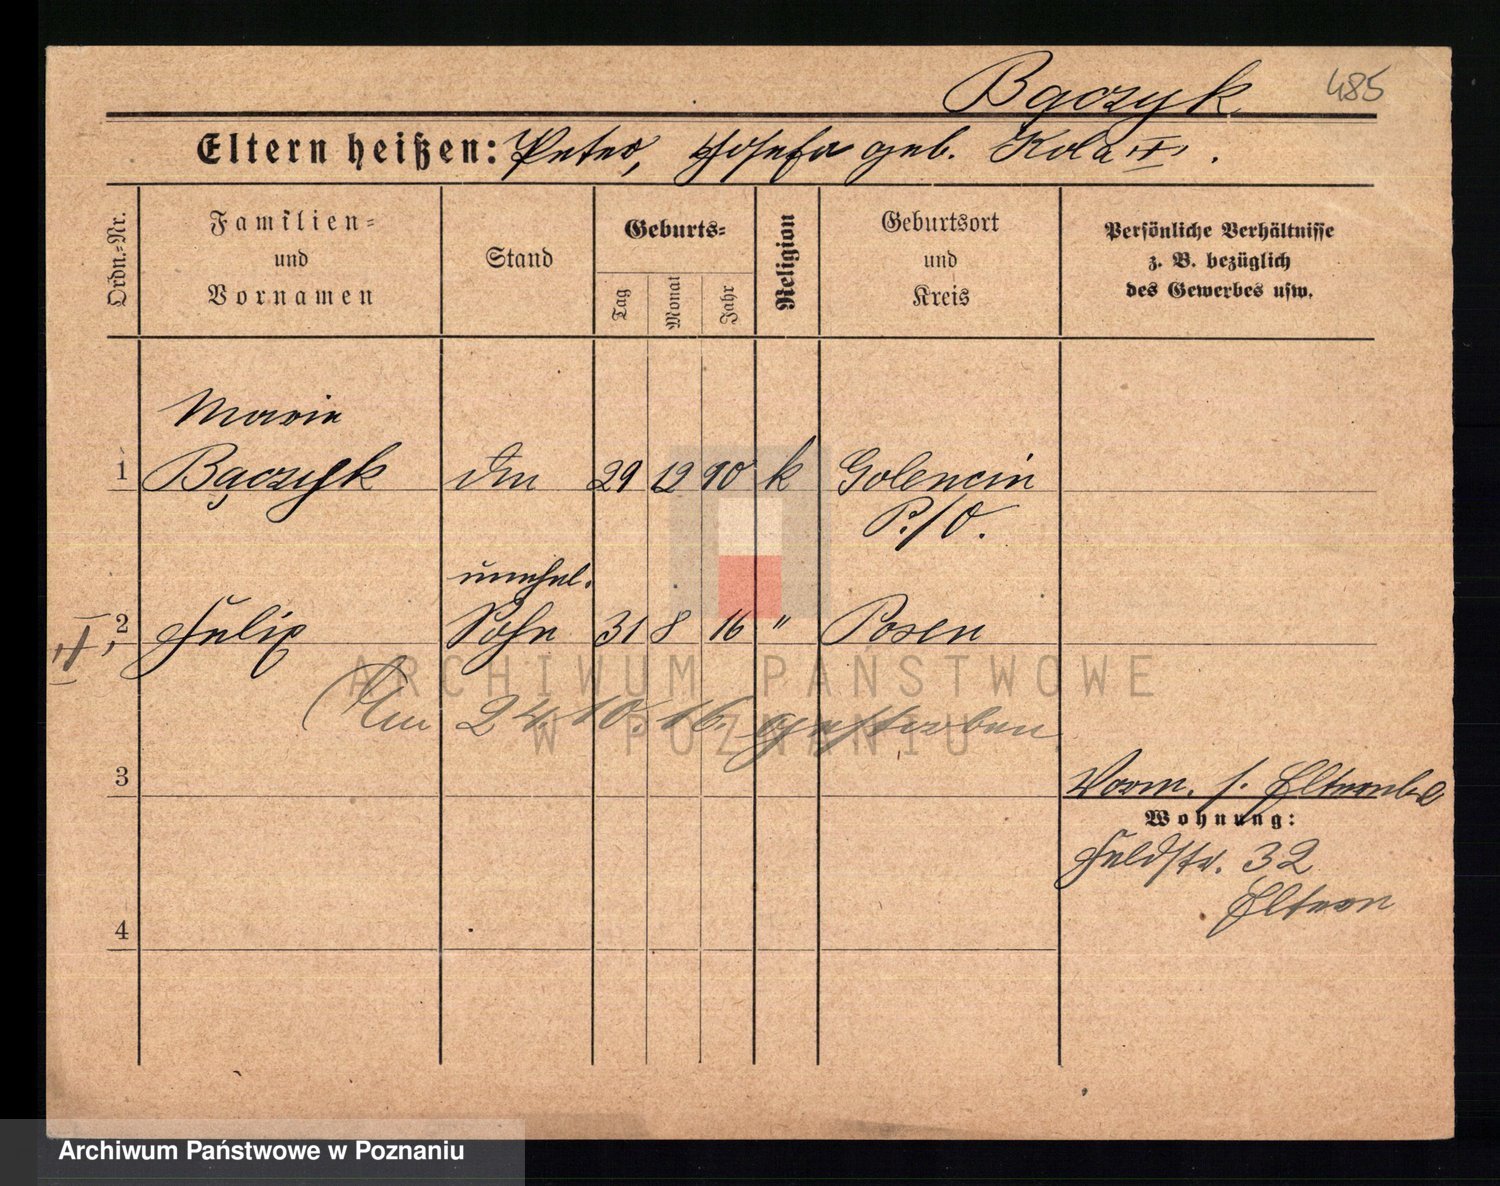 Bączyk 485
Eltern heißen: Peter, Josefa geb. Kola
Ordn.-Nr.
Familien-
und
Vornamen
Stand
Geburts-
Tag
Monat
Jahr
Religion
Geburtsort
und
Kreis
Persönliche Verhältnisse
z. B. bezüglich
des Gewerbes usw.
Maria
1 Bączyk 29 12 90 k Golencin
P./O.
unehel.
2 Felix Sohn 31 8 16 " Posen
Am 24.10.16. gestorben
3
Vorm. s. Elternbl
Wohnung:
Feldstr. 32
Eltern
4
ARCHIWUM PAŃSTWOWE
W POZNANIU
Archiwum Państwowe w Poznaniu